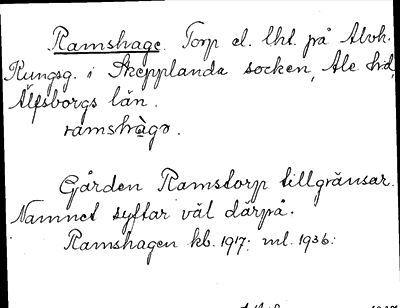 Ramshage. Torp el. lht. på Alvh.
Kungsg. i Skepplanda socken, Ale hd,
Älfsborgs län.
ramshàgə.
Gården Ramstorp tillgränsar.
Namnet syftar väl därpå.
Ramshagen kb. 1917: ml. 1936: